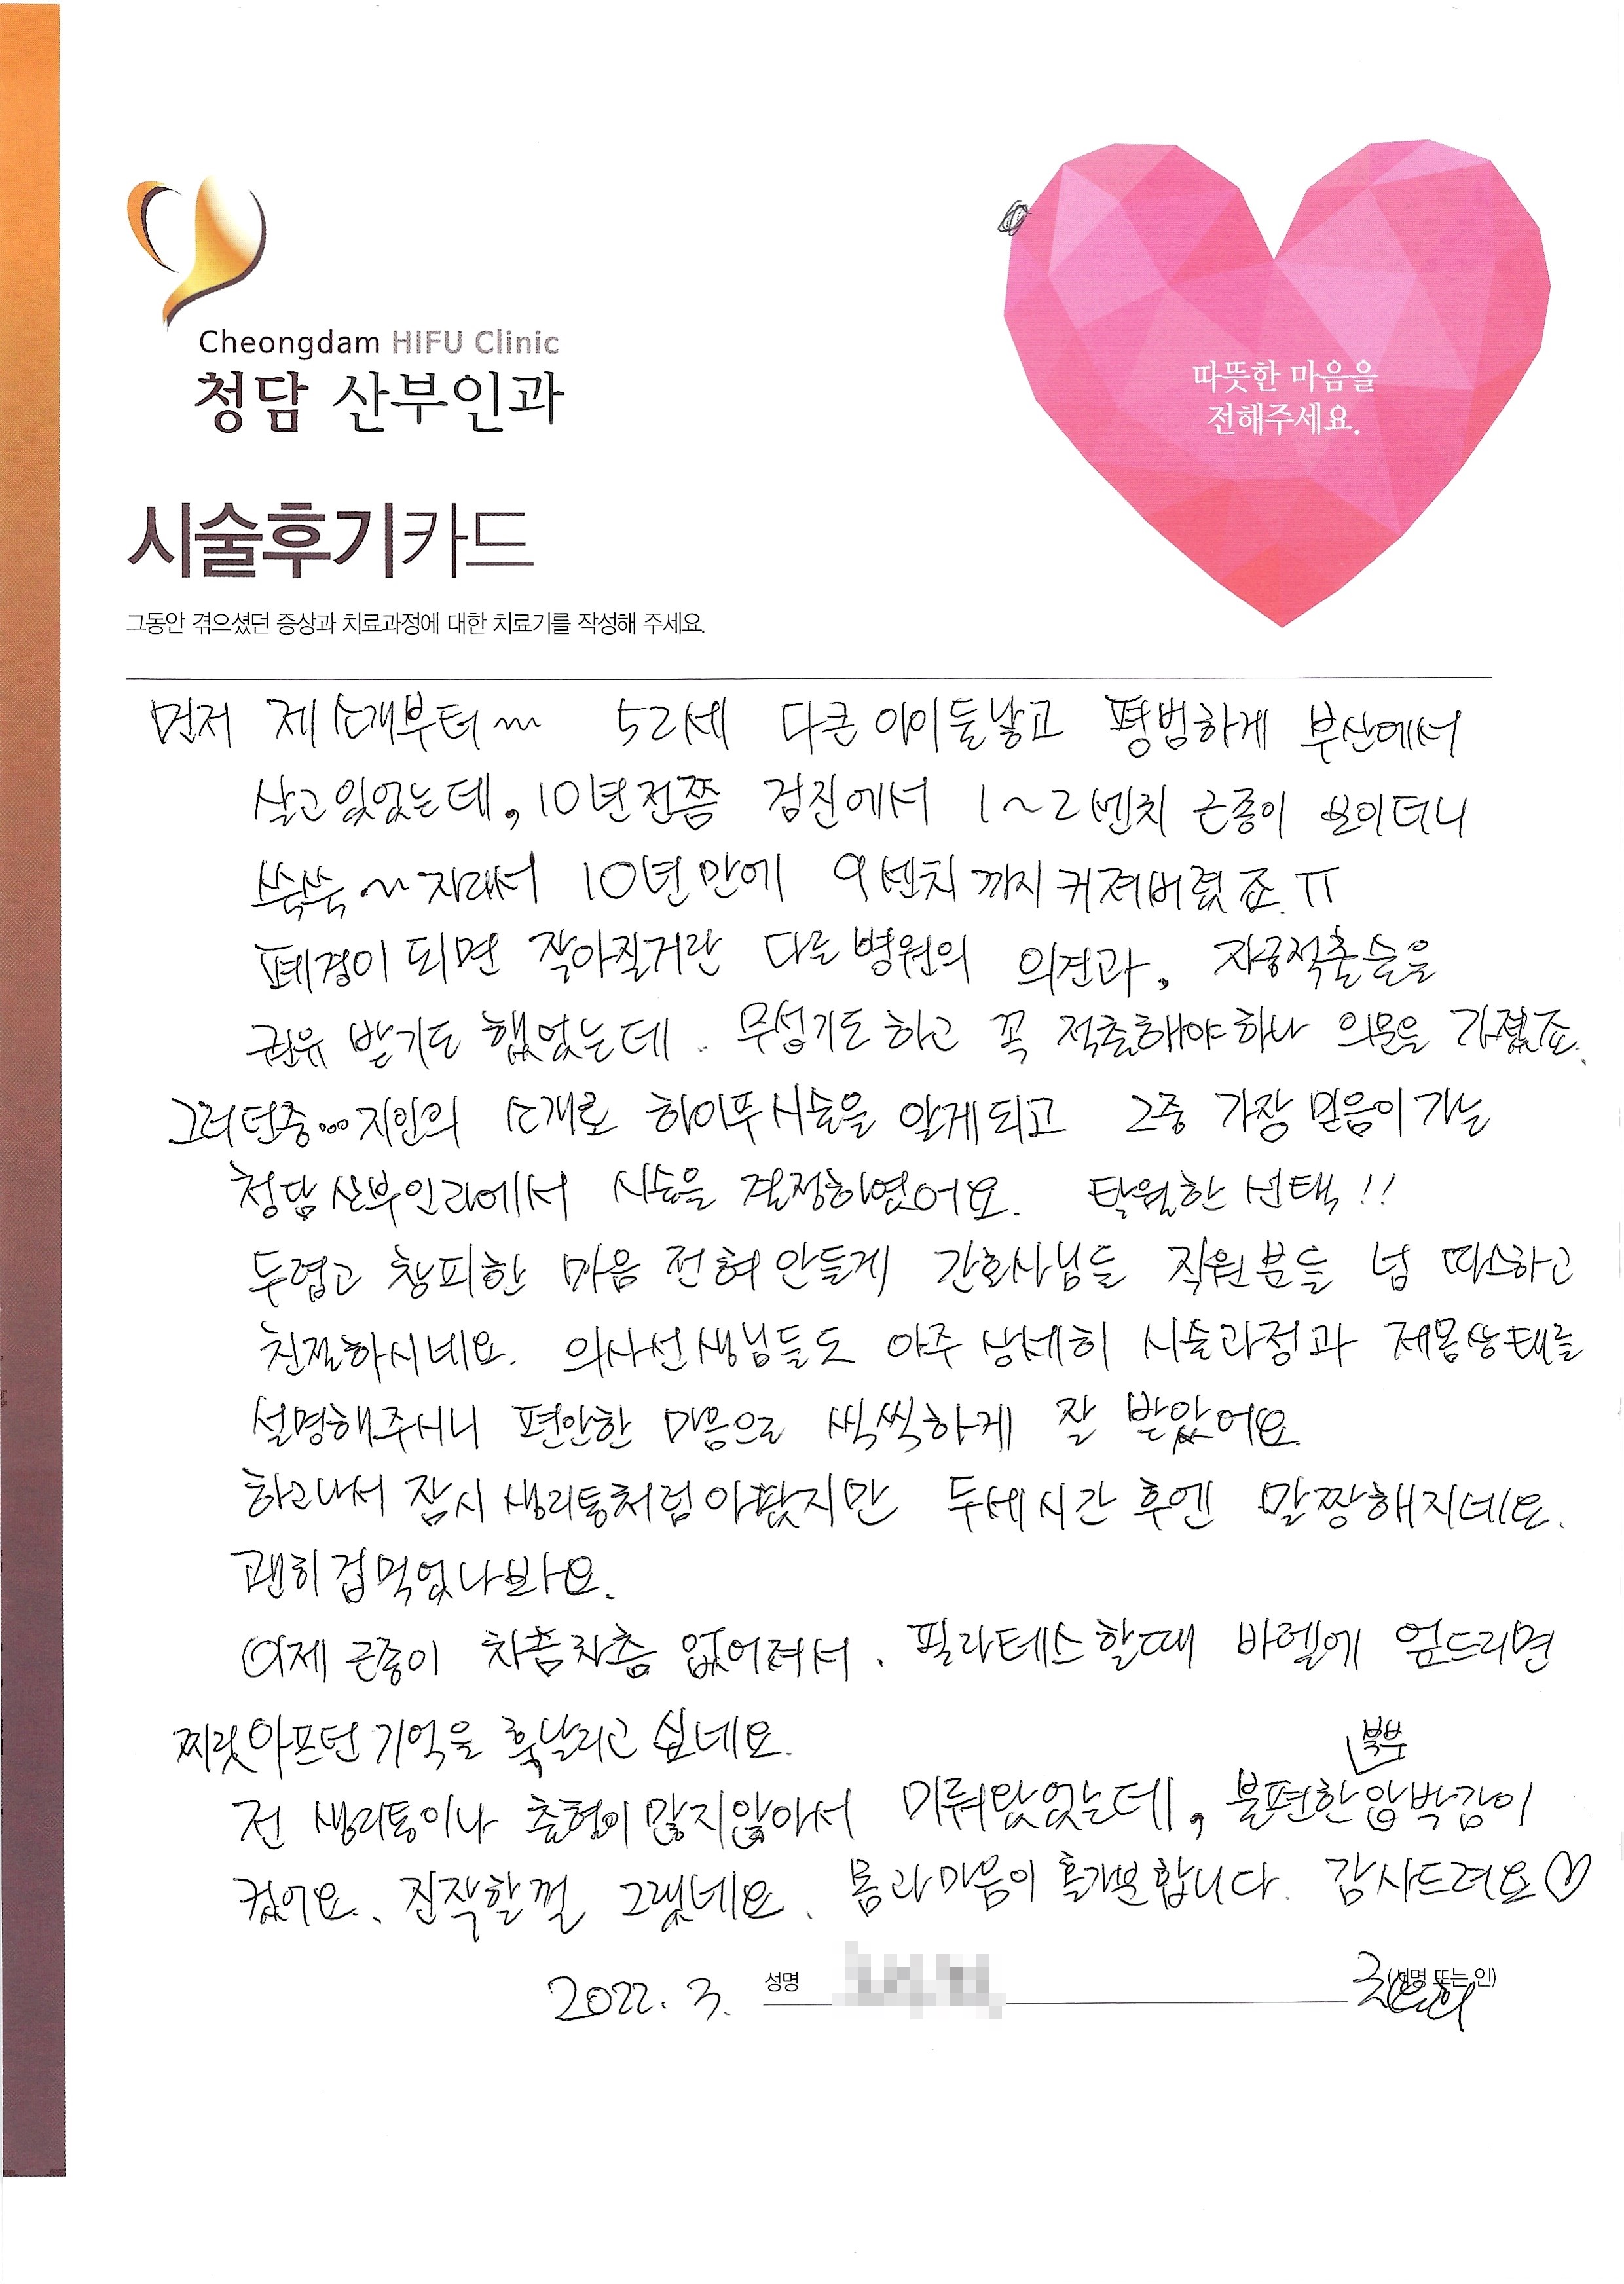 Cheongdam HIFU Clinic
청담 산부인과
따뜻한 마음을
전해주세요.
시술후기카드
그동안 겪으셨던 증상과 치료과정에 대한 치료기를 작성해 주세요.
먼저 제 소개부터~ 52세 다큰 아이들낳고 평범하게 부산에서
살고있었는데, 10년전쯤 검진에서 1~2센치 근종이 보이더니
쑥쑥~자라서 10년만에 9센치까지 커져버렸죠. ㅠ
폐경이 되면 작아질거란 다른병원의 의견과, 자궁적출술을
권유 받기도 했었는데. 무섭기도하고 꼭 적출해야하나 의문을 가졌죠.
그러던중...지인의 소개로 하이푸시술을 알게되고 그중 가장 믿음이가는
청담산부인과에서 시술을 결정하였어요. 탁월한 선택!!
두렵고 창피한 마음 전혀 안들게 간호사님들 직원분들 넘 따스하고
친절하시네요. 의사선생님들도 아주 상세히 시술과정과 제몸상태를
설명해주시니 편안한 마음으로 씩씩하게 잘 받았어요.
하고나서 잠시 생리통처럼 아팠지만 두세시간 후엔 말짱해지네요.
괜히 겁먹었나봐요.
이제 근종이 차츰차츰 없어져서. 필라테스할때 바렐에 엎드리면
찌릿아프던 기억을 훅날리고 싶네요.
복부
전 생리통이나 출혈이 많지않아서 미뤄왔었는데, 불편한 압박감이
컸어요. 진작할껄 그랬네요. 몸과마음이 홀가분합니다. 감사드려요♡
2022. 3. 성명 (서명 또는 인)